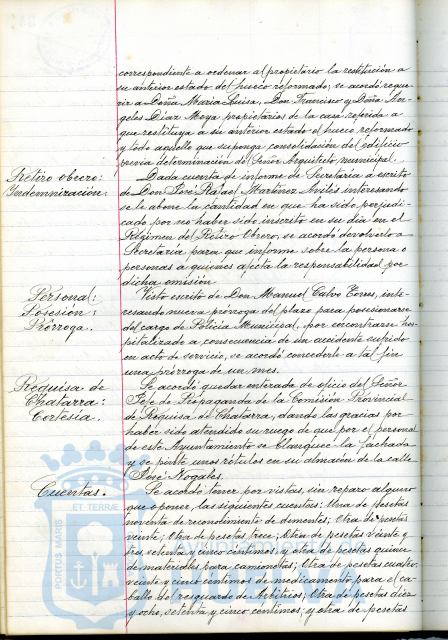 correspondiente a ordenar al propietario la restitución a
su anterior estado del hueco reformado; se acordó reque-
rir a Doña María Luisa, Don Francisco y Doña An-
geles Diaz Moya, propietarios de la casa referida a
que restituya a su anterior estado el hueco reformado
y todo aquello que suponga consolidación del edificio
previa determinación del Señor Arquitecto municipal.
Retiro obrero:
Indemnización.
Dada cuenta de informe de Secretaría a escrito
de Don José Rafael Martínez Avilés interesando
se le abone la cantidad en que ha sido perjudi-
cado por no haber sido inscrito en su día en el
Régimen del Retiro Obrero, se acordó devolverlo a
Secretaría para que informe sobre la persona o
personas a quienes afecta la responsabilidad por
dicha omisión.
Personal:
Posesión:
Prórroga.
Visto escrito de Don Manuel Calvo Torres, inte-
resando nueva prórroga del plazo para posesionarse
del cargo de Policía Municipal, por encontrarse hos-
pitalizado a consecuencia de un accidente sufrido
en acto de servicio, se acordó concederle a tal fin
una prórroga de un mes.
Requisa de
Chatarra:
Cortesía.
Se acordó quedar enterada de oficio del Señor
Jefe de Propaganda de la Comisión Provincial
de Requisa de Chatarra, dando las gracias por
haber sido atendido su ruego de que por el personal
de este Ayuntamiento se blanquee la fachada
y se pinte unos rótulos en su almacén de la calle
José Nogales.
Cuentas.
Se acordó tener por vistas, sin reparo alguno
que oponer, las siguientes cuentas: Una de pesetas
noventa de reconocimiento de dementes; Otra de pesetas
veinte; Otra de pesetas trece; Otra de pesetas veinte y
tres setenta y cinco céntimos, y otra de pesetas quince
de materiales para camionetas; Otra de pesetas cuatro
veinte y cinco céntimos de medicamento para el ca-
ballo del resguardo de Arbitrios; Otra de pesetas diez
y ocho, setenta y cinco céntimos; y otra de pesetas
PORTUS MARIS ET TERRÆ
Ayuntamiento